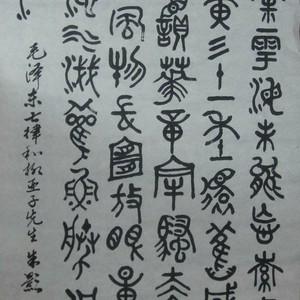 茶粤海未能忘索
黄三十一年還舊國
讀華章牢騷太
風物長宜放眼量
池水淺觀魚勝過
毛泽东七律和柳亚子先生